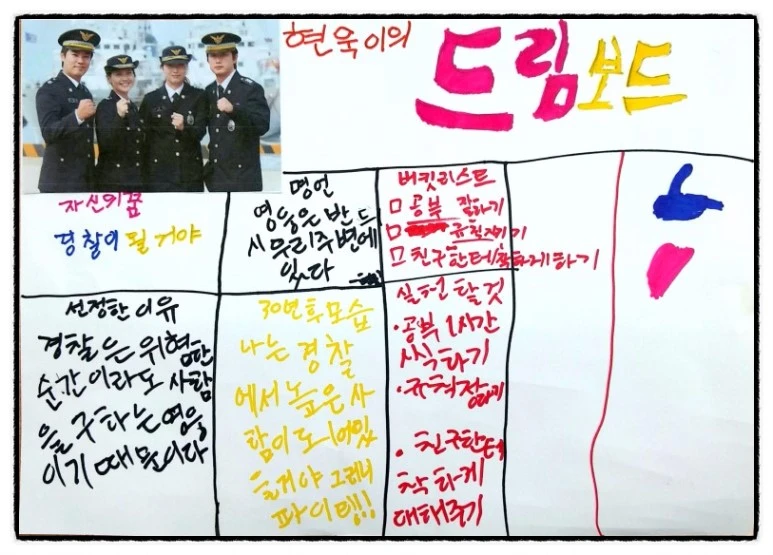 현욱이의
드림보드
자신의꿈
경찰이 될 거야
명언
영웅은 반드
시 우리주변에
있다
버킷리스트
□ 공부 잘하기
□ 규칙지키기
□ 친구한테 착하게하기
선정한 이유
경찰은 위험한
순간이라도 사람
을 구하는 영웅
이기 때문이다
30년후모습
나는 경찰
에서 높은 사
람이 되어있
을거야 그러니
파이팅!!
실천 할것
·공부 1시간
씩하기
· 친구한테
착하게
대해주기